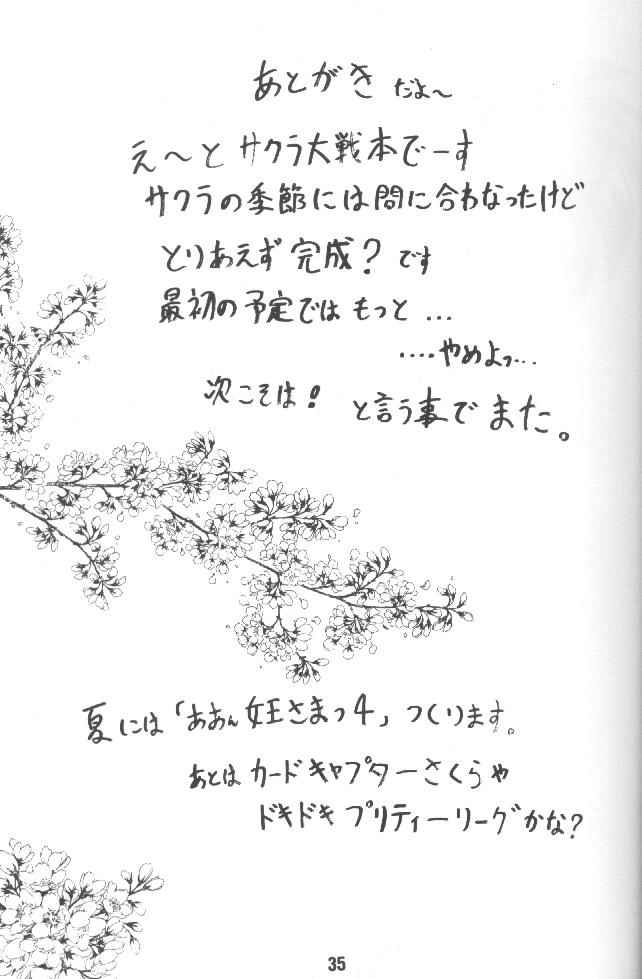 あとがき だよ〜
え〜と サクラ大戦本でーす
サクラの季節には間に合わなったけど
とりあえず 完成？です
最初の予定では もっと …
‥‥やめよっ…
次こそは！ と言う事で また。
夏には「ああん女王さまっ4」つくります。
あとは カードキャプターさくらや
ドキドキ プリティーリーグかな？
35